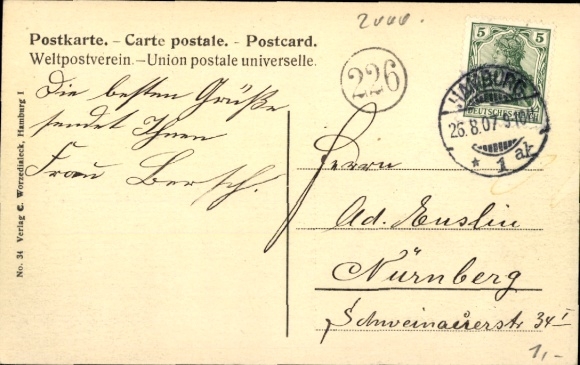 2000.
Postkarte. – Carte postale. - Postcard.
Weltpostverein. – Union postale universelle.
226
5 5
DEUTSCHES REICH
HAMBURG
26.8.07. 9-10N
* 1 ak
Die besten Grüße
sendet Ihnen
Frau Bersch.
Herrn
Ad. Enslin
Nürnberg
Schweinauerstr 34 I
1,-
No. 34 Verlag C. Worzedialeck, Hamburg I